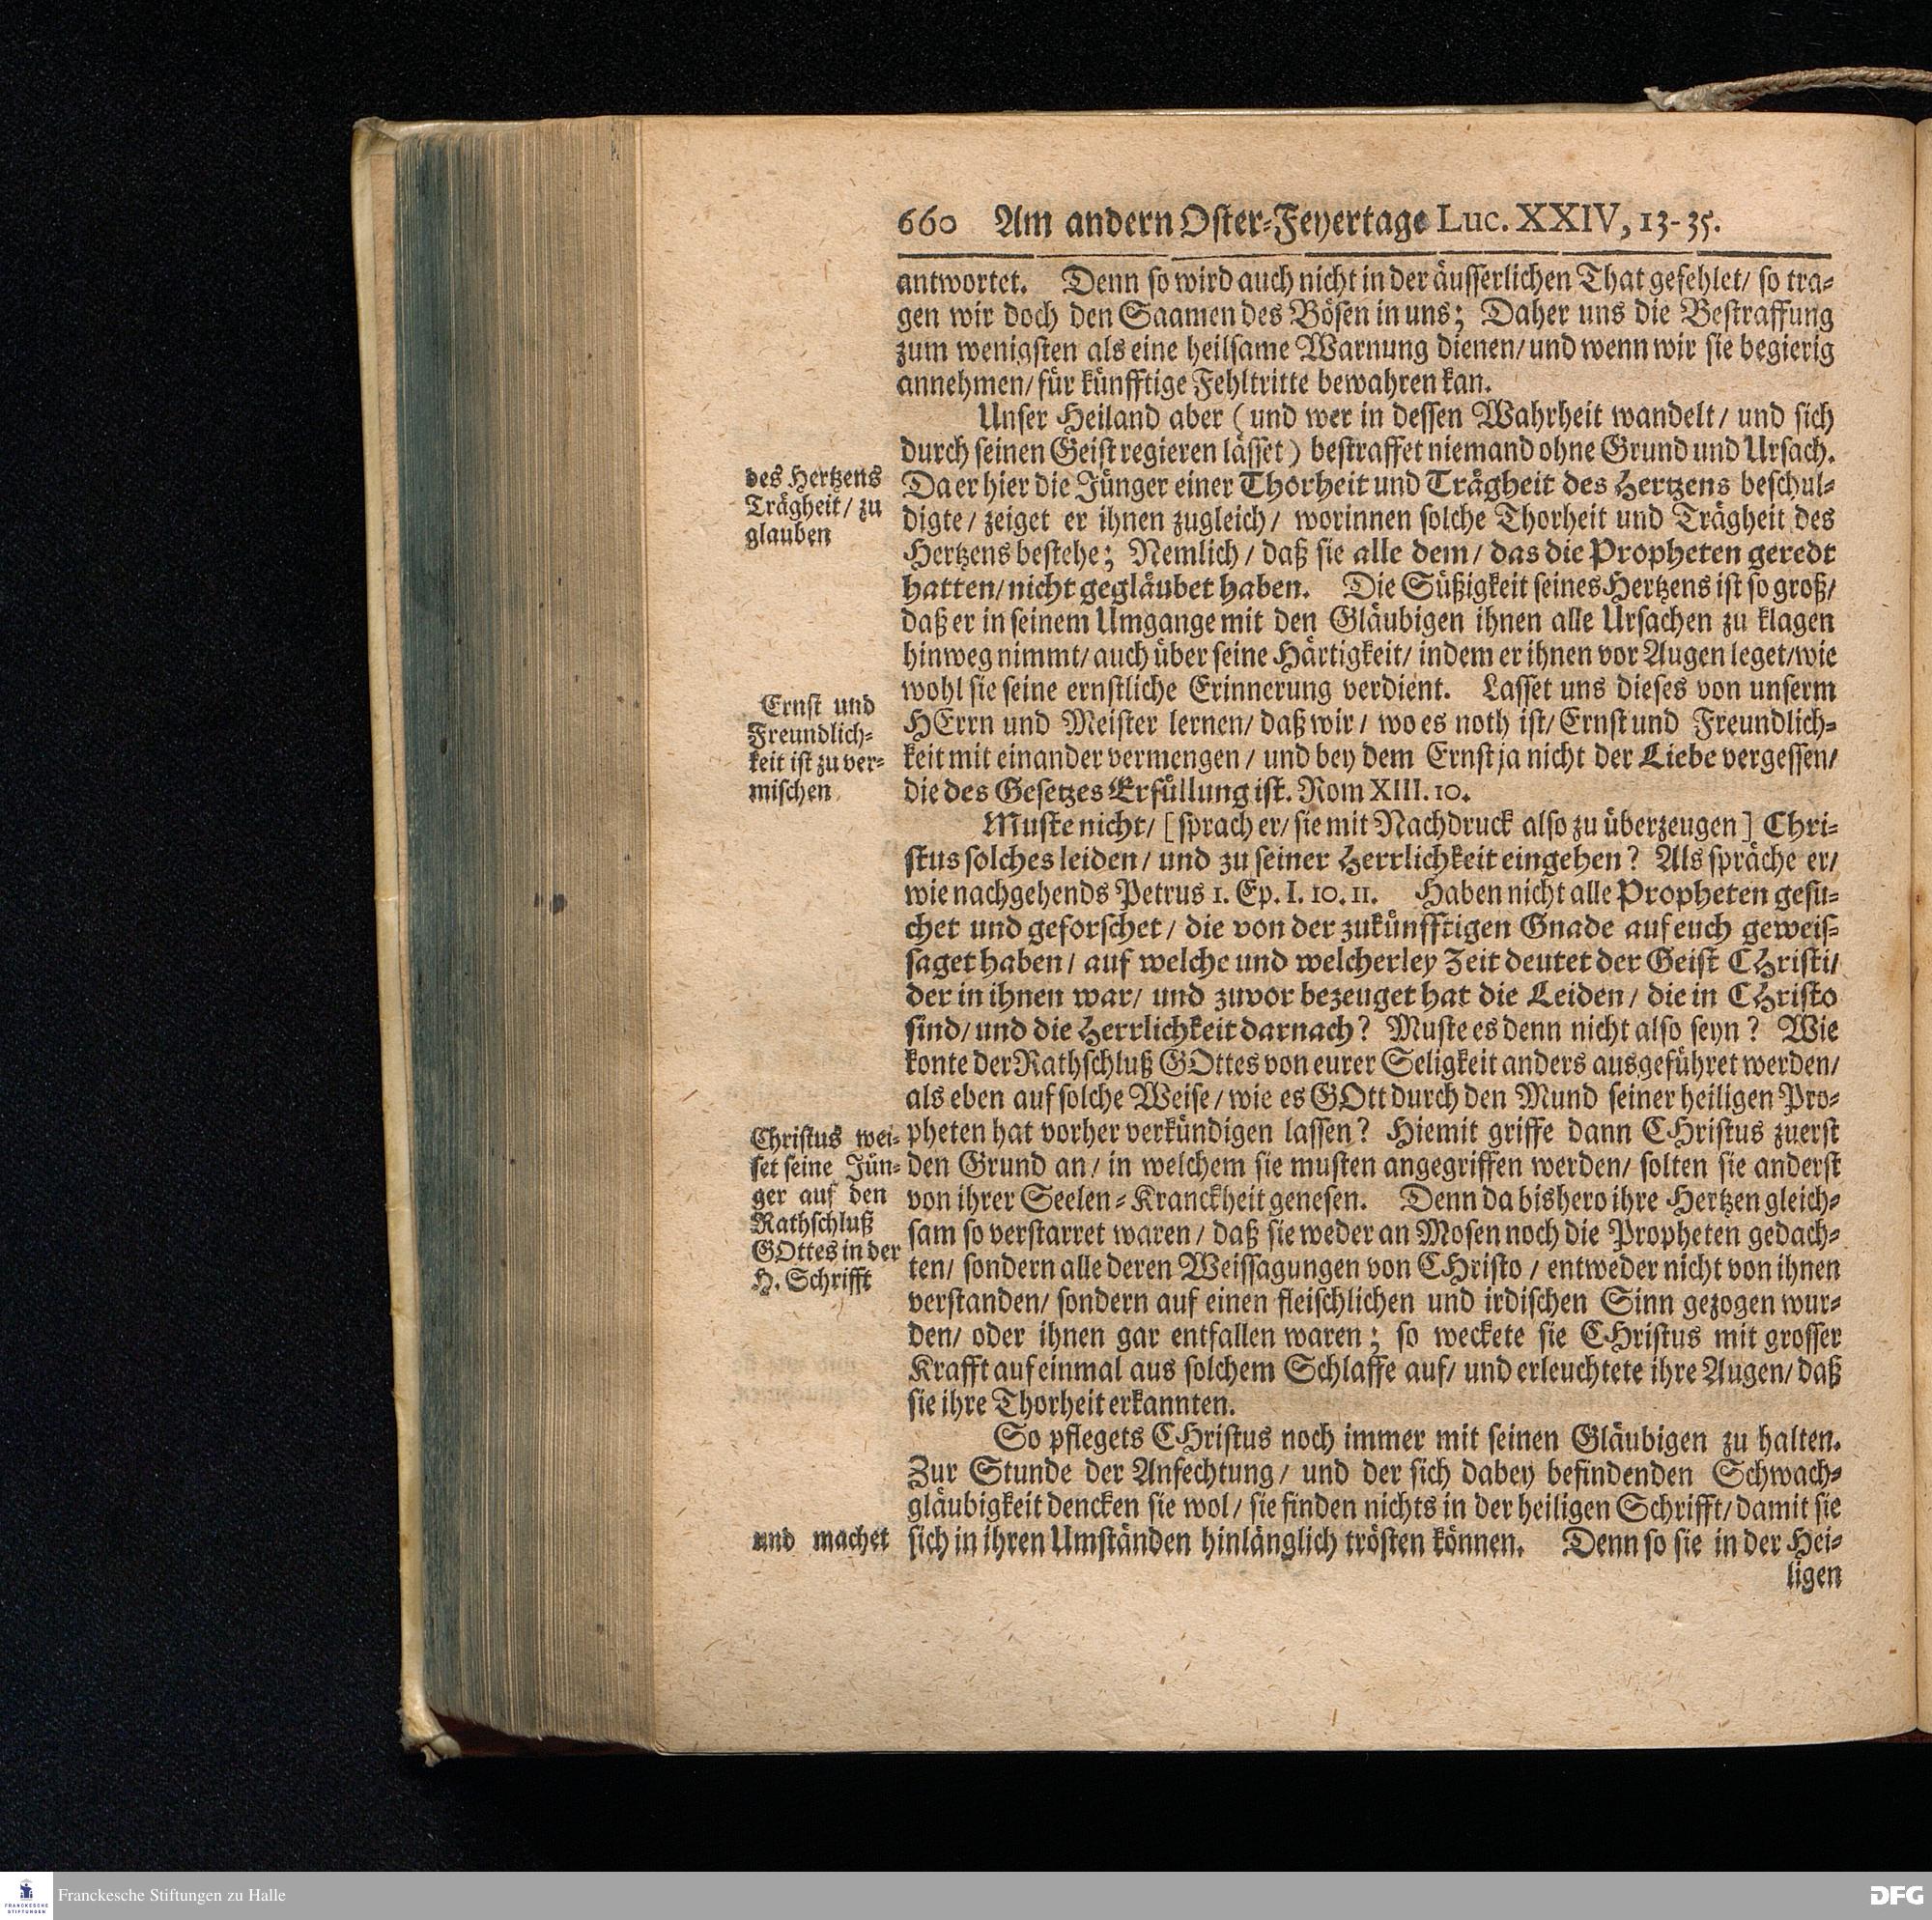 660 Am andern Oster-Feyertage Luc. XXIV, 13-35.
antwortet. Denn so wird auch nicht in der äusserlichen That gefehlet/ so tra-
gen wir doch den Saamen des Bösen in uns; Daher uns die Bestraffung
zum wenigsten als eine heilsame Warnung dienen/ und wenn wir sie begierig
annehmen/ für künfftige Fehltritte bewahren kan.
Unser Heiland aber (und wer in dessen Wahrheit wandelt/ und sich
durch seinen Geist regieren lässet) bestraffet niemand ohne Grund und Ursach.
des Hertzens
Trägheit/ zu
glauben
Da er hier die Jünger einer Thorheit und Trägheit des Hertzens beschul-
digte/ zeiget er ihnen zugleich/ worinnen solche Thorheit und Trägheit des
Hertzens bestehe; Nemlich/ daß sie alle dem/ das die Propheten geredt
hatten/ nicht gegläubet haben. Die Süßigkeit seines Hertzens ist so groß/
daß er in seinem Umgange mit den Gläubigen ihnen alle Ursachen zu klagen
hinweg nimmt/ auch über seine Härtigkeit/ indem er ihnen vor Augen leget/ wie
wohl sie seine ernstliche Erinnerung verdient. Lasset uns dieses von unserm
Ernst und
Freundlich-
keit ist zu ver-
mischen
HErrn und Meister lernen/ daß wir/ wo es noth ist/ Ernst und Freundlich-
keit mit einander vermengen/ und bey dem Ernst ja nicht der Liebe vergessen/
die des Gesetzes Erfüllung ist. Rom XIII. 10.
Muste nicht/ [sprach er/ sie mit Nachdruck also zu überzeugen] Chri-
stus solches leiden/ und zu seiner Herrlichkeit eingehen? Als spräche er/
wie nachgehends Petrus 1. Ep. I. 10. 11. Haben nicht alle Propheten gesu-
chet und geforschet/ die von der zukünfftigen Gnade auf euch geweis-
saget haben/ auf welche und welcherley Zeit deutet der Geist CHristi/
der in ihnen war/ und zuvor bezeuget hat die Leiden/ die in CHristo
sind/ und die Herrlichkeit darnach? Muste es denn nicht also seyn? Wie
konte der Rathschluß GOttes von eurer Seligkeit anders ausgeführet werden/
als eben auf solche Weise/ wie es GOtt durch den Mund seiner heiligen Pro-
pheten hat vorher verkündigen lassen? Hiemit griffe dann CHristus zuerst
Christus wei-
set seine Jün-
ger auf den
Rathschluß
GOttes in der
H. Schrifft
den Grund an/ in welchem sie musten angegriffen werden/ solten sie anderst
von ihrer Seelen-Kranckheit genesen. Denn da bishero ihre Hertzen gleich-
sam so verstarret waren/ daß sie weder an Mosen noch die Propheten gedach-
ten/ sondern alle deren Weissagungen von CHristo/ entweder nicht von ihnen
verstanden/ sondern auf einen fleischlichen und irdischen Sinn gezogen wur-
den/ oder ihnen gar entfallen waren; so weckete sie CHristus mit grosser
Krafft auf einmal aus solchem Schlaffe auf/ und erleuchtete ihre Augen/ daß
sie ihre Thorheit erkannten.
So pflegets CHristus noch immer mit seinen Gläubigen zu halten.
Zur Stunde der Anfechtung/ und der sich dabey befindenden Schwach-
gläubigkeit dencken sie wol/ sie finden nichts in der heiligen Schrifft/ damit sie
und machet
sich in ihren Umständen hinlänglich trösten können. Denn so sie in der Hei-
ligen
FRANCKESCHE
STIFTUNGEN
Franckesche Stiftungen zu Halle
DFG